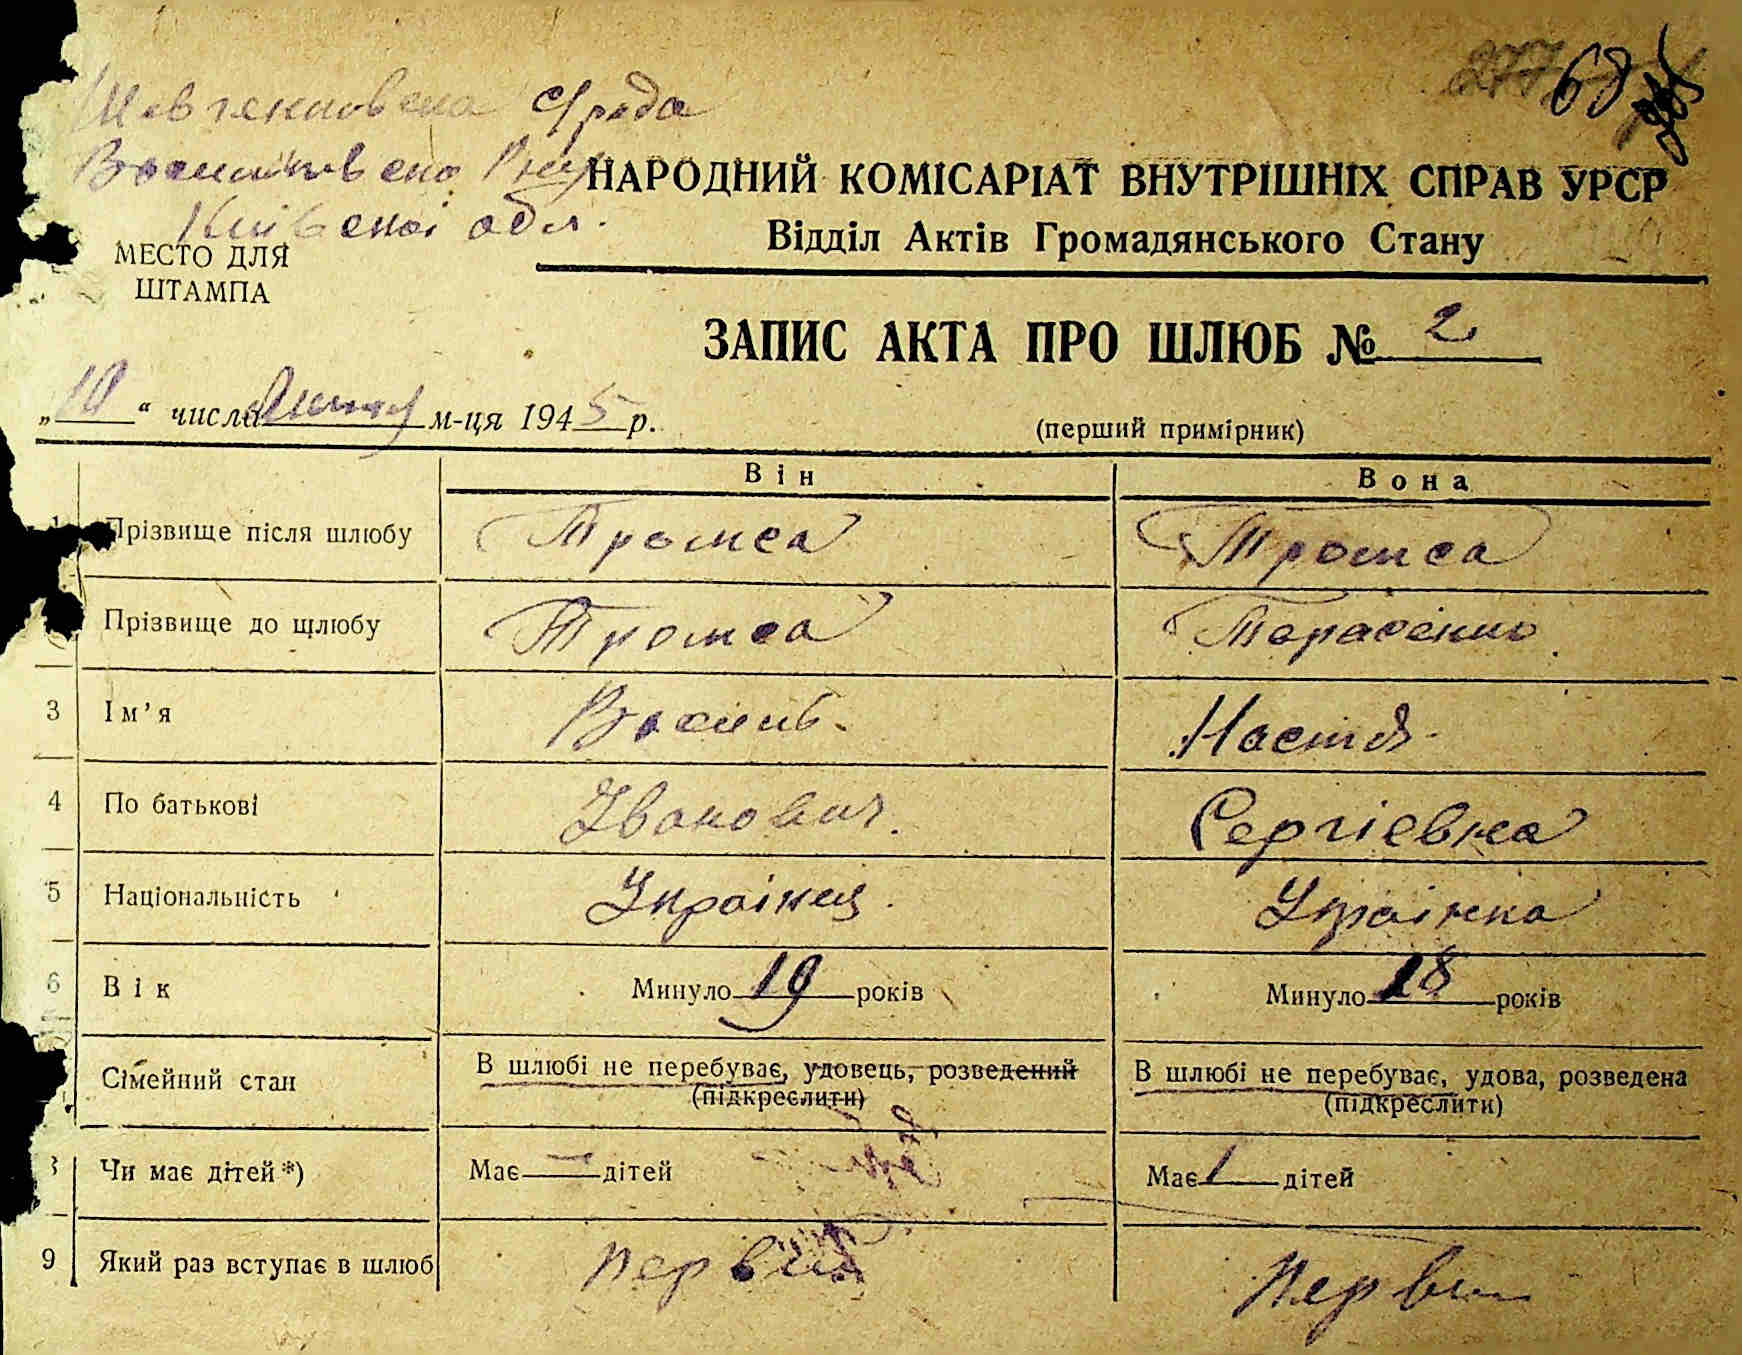 277 68
Шевченковска с/рада
Васильківсько
Київскої обл.
НАРОДНИЙ КОМІСАРІАТ ВНУТРІШНІХ СПРАВ УРСР
Відділ Актів Громадянського Стану
МЕСТО ДЛЯ
ШТАМПА
ЗАПИС АКТА ПРО ШЛЮБ № 2
„10“ числа м-ця 1945 р.
(перший примірник)
Він Вона
Прізвище після шлюбу Тромса Тромса
Прізвище до щлюбу Тромса Тарасенко
3 Ім’я Василь. Настя
4 По батькові Іванович. Сергієвна
5 Національність Українец. Українка
6 Вік Минуло 19 років Минуло 18 років
Сімейний стан В шлюбі не перебуває, удовець, розведений В шлюбі не перебуває, удова, розведена
(підкреслити) (підкреслити)
Чи має дітей*) Має — дітей Має дітей
9 Який раз вступає в шлюб Первий Перви